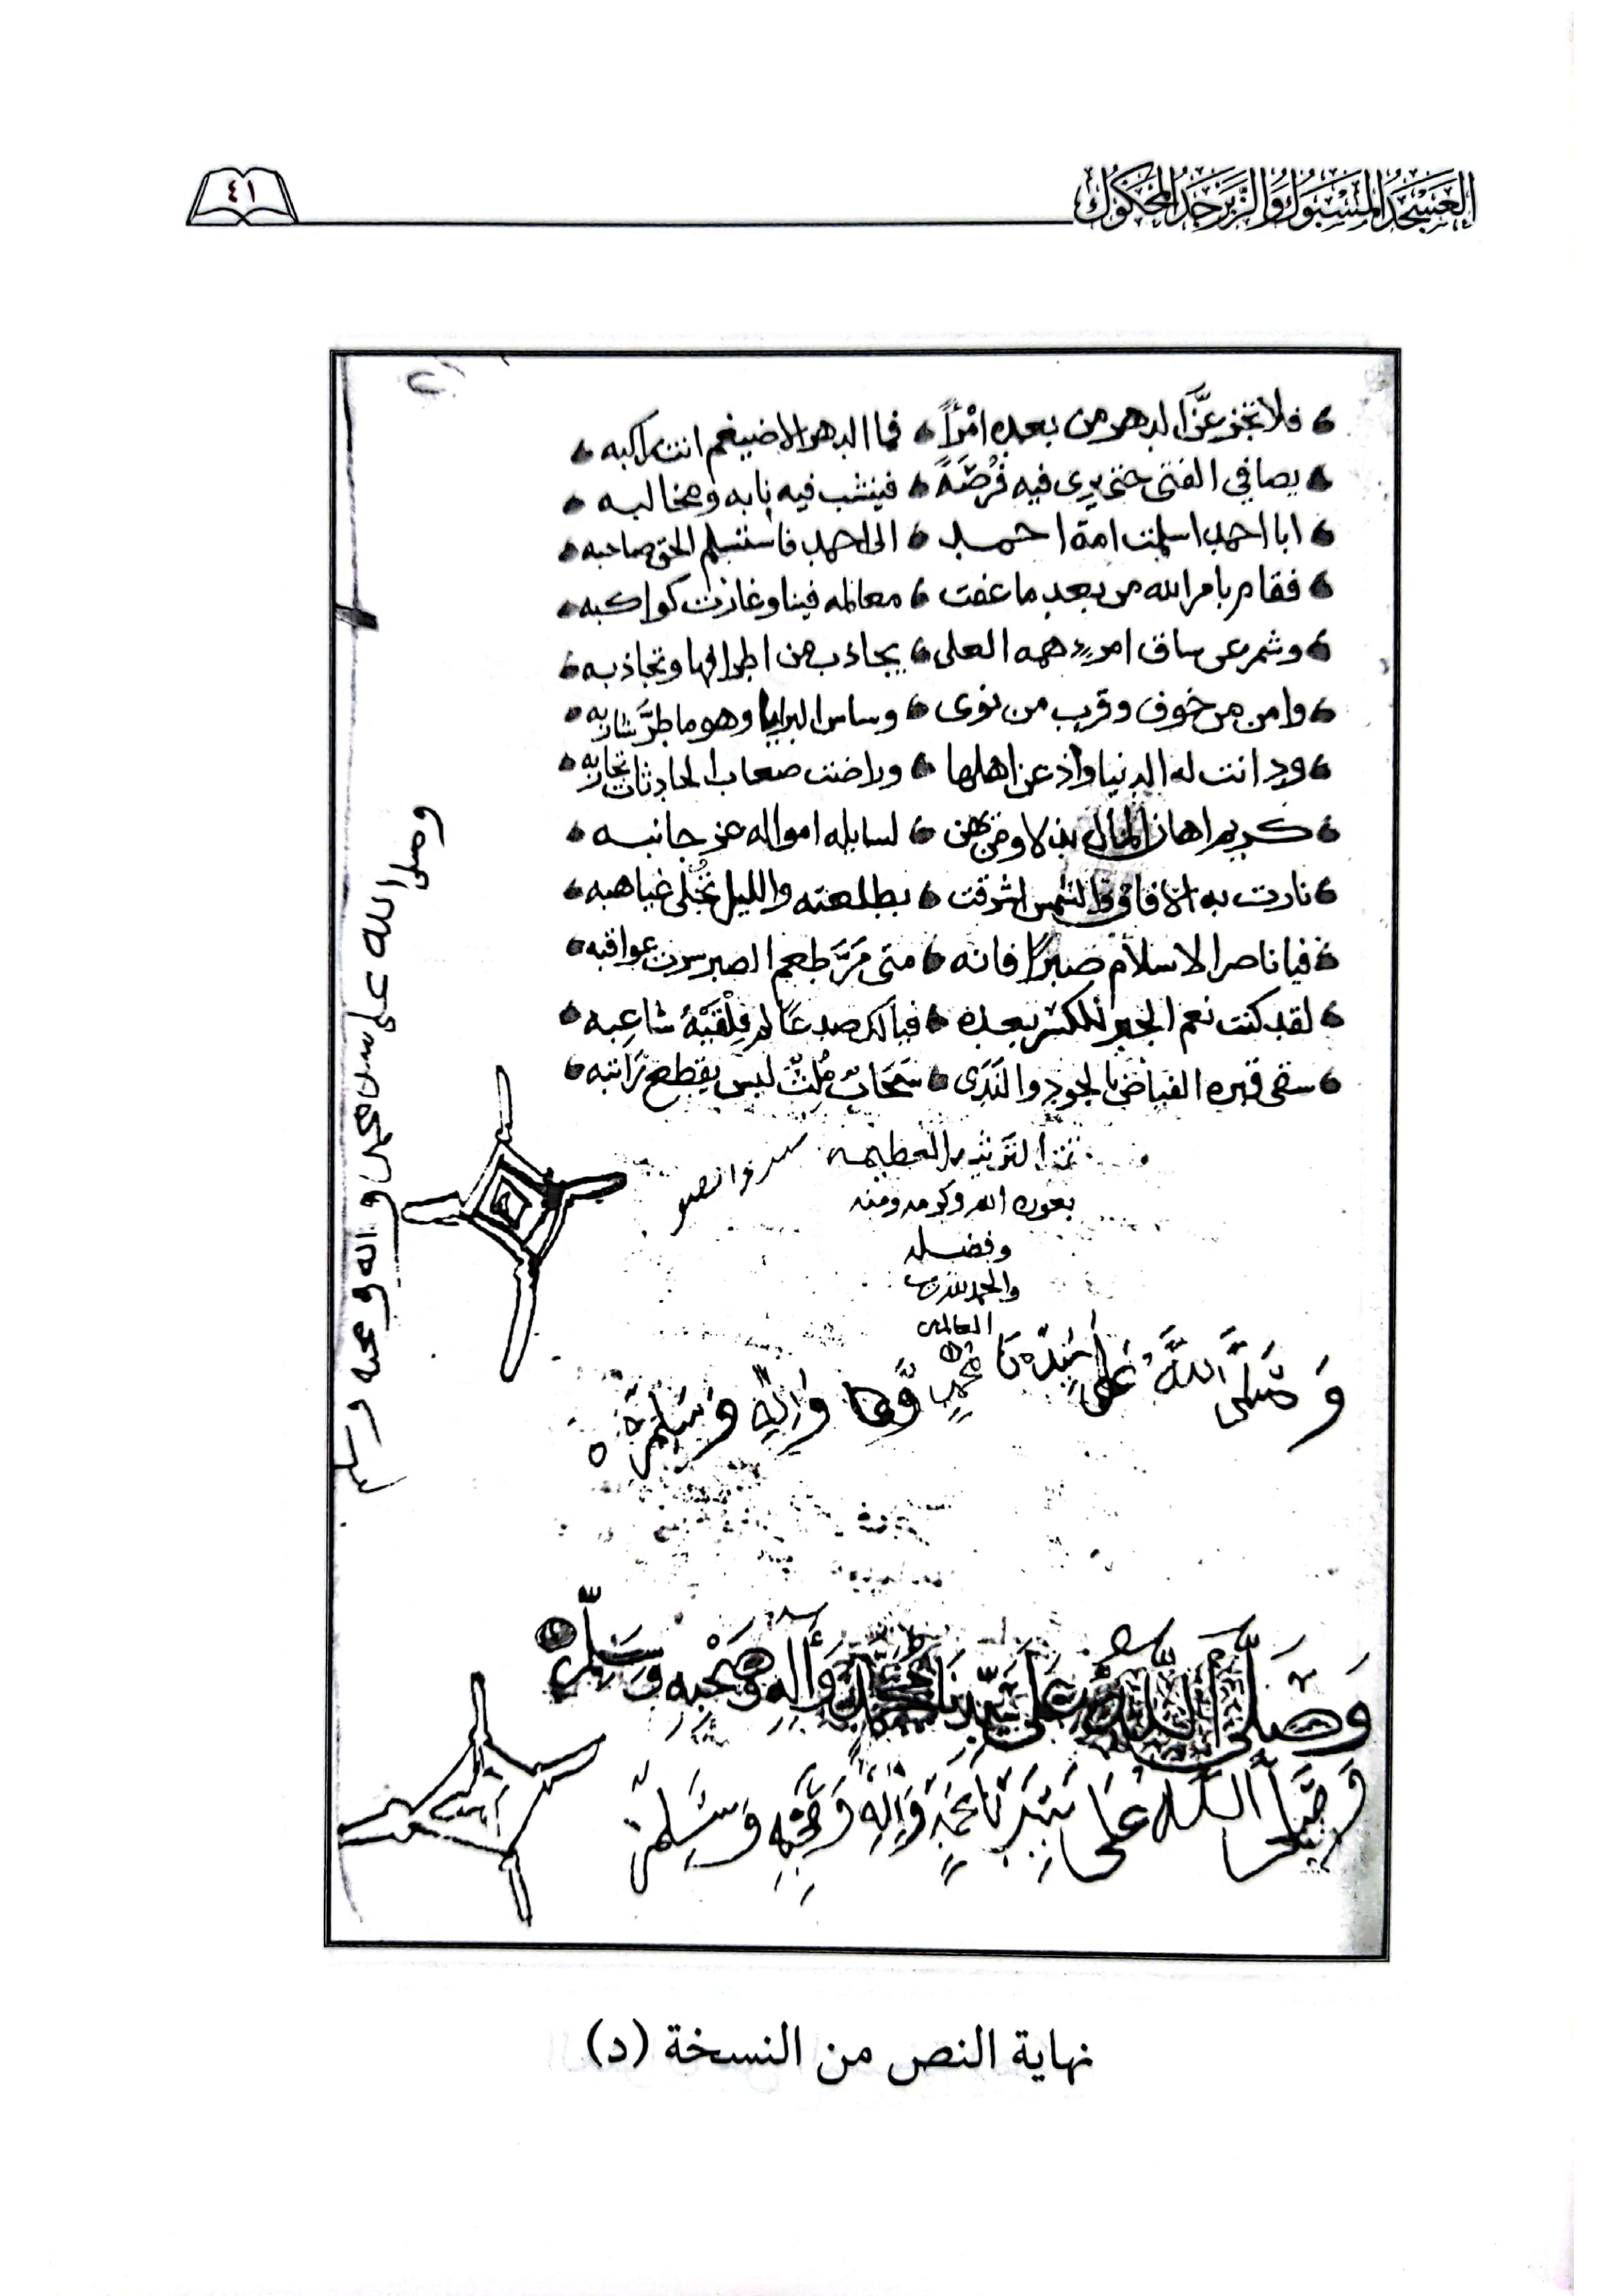 العسجد المسبوك والزبرجد المحكوك
٤١
فلا تجزعن الدهر من بعده امرأً فما الدهر الا ضيغم انت راكبه
يصافي الفتى حتى يرى فيه فُرْصَةً فينشب فيه نابه ومخالبه
ابا احمد اسلمت امة احمد الى احمد فاستسلم الحق صاحبه
فقام بامر الله من بعد ما عفت معالمه فينا وغارت كواكبه
وشمر عن ساق امرء همه العلى يجاذب من اطرافها وتجاذبه
وامن من خوف وقرب من نوى وساس البرايا وهو ما طرَّ شاربه
ودانت له الدنيا واذعن اهلها وراضت صعاب الحادثات تجاربه
كريم اهان المال بذلا ومن يهن لسايله امواله عز جانبه
نارت به الافاق والشمس اشرقت بطلعته والليل تُجلى غياهبه
فيا ناصر الاسلام صبرًا فانه متى مَرَّ طعم الصبر سرت عواقبه
لقد كنت نعم الجبر للكسر بعده فيالك صدعا لم يلقيه شاعبه
سقى قبره الفياض بالجود والندى سحاب مُلِثّ ليس يقطع راتبه
العظيمه
بعون الله وكرمه ومنه
وفضله
والحمد لله رب
العالمين
وَصَلَّى اللَّهُ عَلَى سَيِّدِنَا مُحَمَّدٍ وَالِهِ وَسَلَّمَ
وَصَلَّى اللَّهُ عَلَى سَيِّدِنَا مُحَمَّدٍ وَآلِهِ وَصَحْبِهِ وَسَلَّمَ
وَصَلَّى اللَّه عَلَى سَيِّدِنَا مُحَمَّدٍ وَالِهِ وَصَحْبِهِ وَسَلَّمَ
وصلى الله على سيدنا محمد واله وصحبه وسلم
نهاية النص من النسخة (د)